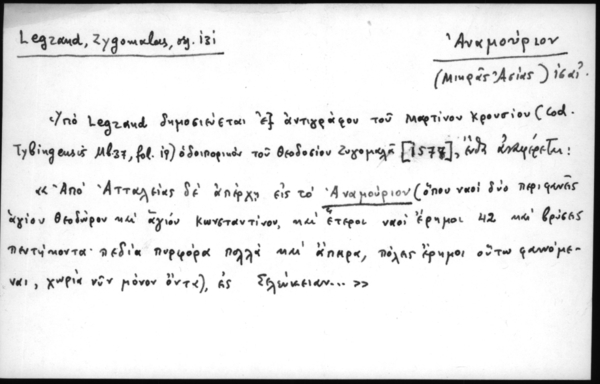 Legrand, Zygomalas, σς. 131
Ἀναμούριον
(Μικρᾶς Ἀσίας)
Ὑπὸ Legrand δημοσιεύεται ἐξ ἀντιγράφου τοῦ Μαρτίνου Κρουσίου (Cod.
Tybingensis Mb37, fol. 19) ὁδοιπορικὸν τοῦ Θεοδοσίου Ζυγομαλᾶ [1577], ἔνθα ἀναφέρεται:
«Ἀπὸ Ἀτταλείας δὲ ἀπέρχῃ εἰς τὸ Ἀναμούριον (ὅπου ναοὶ δύο περιφανεῖς
ἁγίου Θεοδώρου καὶ ἁγίου Κωνσταντίνου, καὶ ἕτεροι ναοὶ ἔρημοι 42 καὶ βρύσεις
πεντήκοντα· πεδία πυρφόρα πολλὰ καὶ ἄπειρα, πόλεις ἔρημοι οὕτω φαινόμε-
ναι, χωρία νῦν μόνον ὄντα), ἐς Σελεύκειαν... »